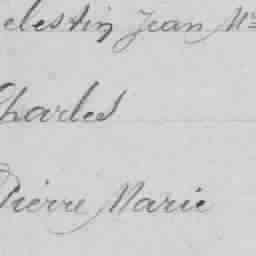 elestin Jean M
Charles
Pierre Marie